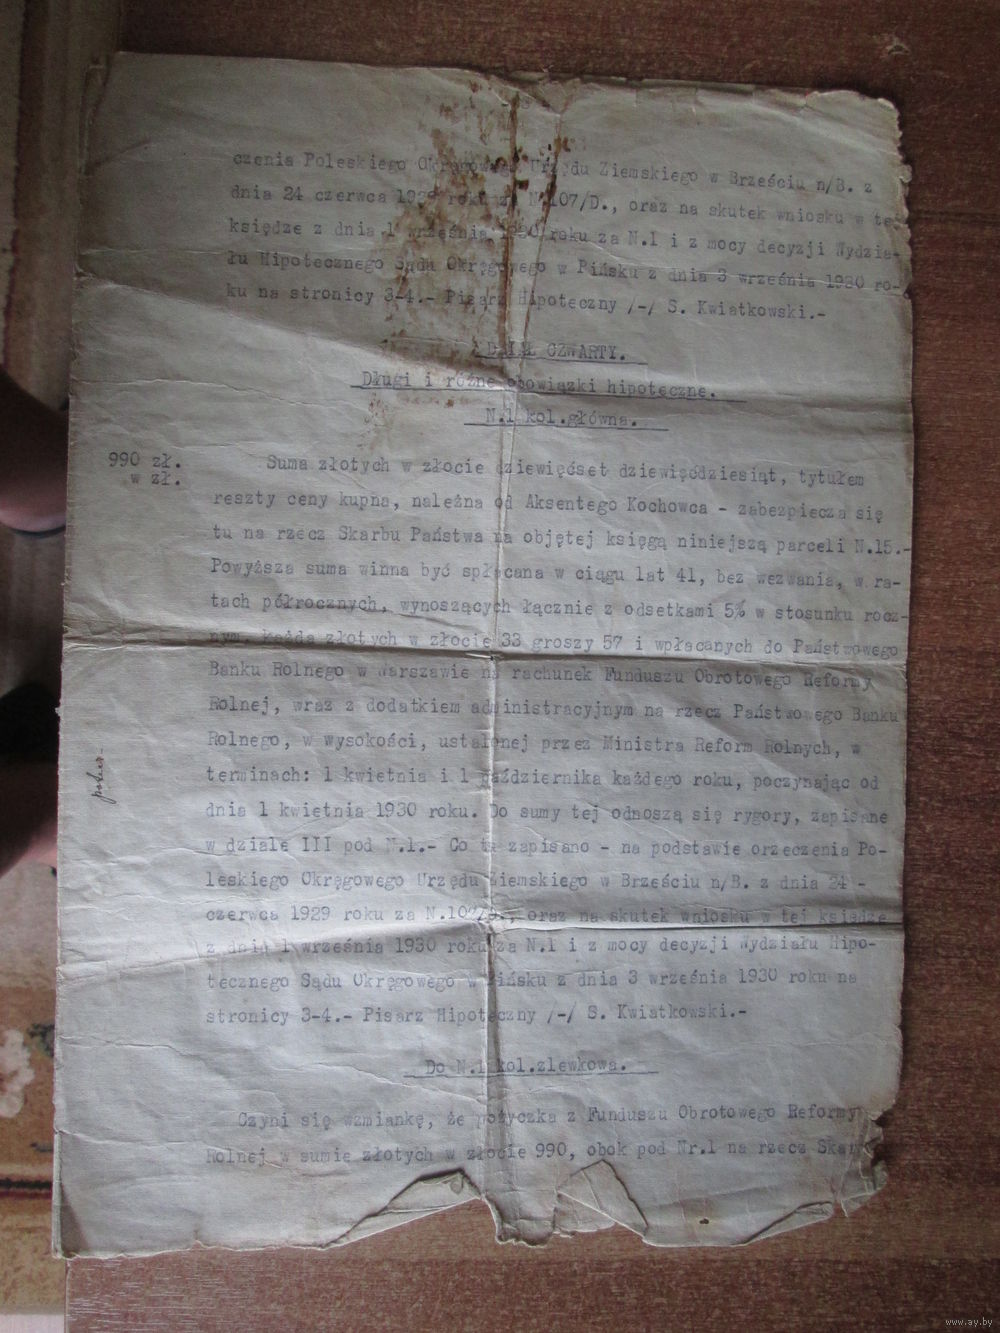 czenia Poleskiego Okręgowego Urzędu Ziemskiego w Brześciu n/B. z
dnia 24 czerwca 1929 roku za N.107/D., oraz na skutek wniosku w tej
księdze z dnia 1 września 1930 roku za N.1 i z mocy decyzji Wydzia-
łu Hipotecznego Sądu Okręgowego w Pińsku z dnia 3 września 1930 ro-
ku na stronicy 3-4.- Pisarz Hipoteczny /-/ S. Kwiatkowski.-
DZIAŁ CZWARTY.
Długi i różne obowiązki hipoteczne.
N.1 kol.główna.
990 zł.
w zł.
Suma złotych w złocie dziewięćset dziewięćdziesiąt, tytułem
reszty ceny kupna, należna od Aksentego Kochowca - zabezpiecza się
tu na rzecz Skarbu Państwa na objętej księgą niniejszą parceli N.15.-
Powyższa suma winna być spłacana w ciągu lat 41, bez wezwania, w ra-
tach półrocznych, wynoszących łącznie z odsetkami 5% w stosunku rocz-
nym, każda złotych w złocie 33 groszy 57 i wpłacanych do Państwowego
Banku Rolnego w Warszawie na rachunek Funduszu Obrotowego Reformy
Rolnej, wraz z dodatkiem administracyjnym na rzecz Państwowego Banku
Rolnego, w wysokości, ustalonej przez Ministra Reform Rolnych, w
terminach: 1 kwietnia i 1 października każdego roku, poczynając od
dnia 1 kwietnia 1930 roku. Do sumy tej odnoszą się rygory, zapisane
w dziale III pod N.1.- Co tu zapisano - na podstawie orzeczenia Po-
leskiego Okręgowego Urzędu Ziemskiego w Brześciu n/B. z dnia 24 -
czerwca 1929 roku za N.107/D., oraz na skutek wniosku w tej księdze
z dnia 1 września 1930 roku za N.1 i z mocy decyzji Wydziału Hipo-
tecznego Sądu Okręgowego w Pińsku z dnia 3 września 1930 roku na
stronicy 3-4.- Pisarz Hipoteczny /-/ S. Kwiatkowski.-
Do N.1 kol.zlewkowa.
Czyni się wzmiankę, że pożyczka z Funduszu Obrotowego Reformy
Rolnej w sumie złotych w złocie 990, obok pod Nr.1 na rzecz Skar
www.ay.by